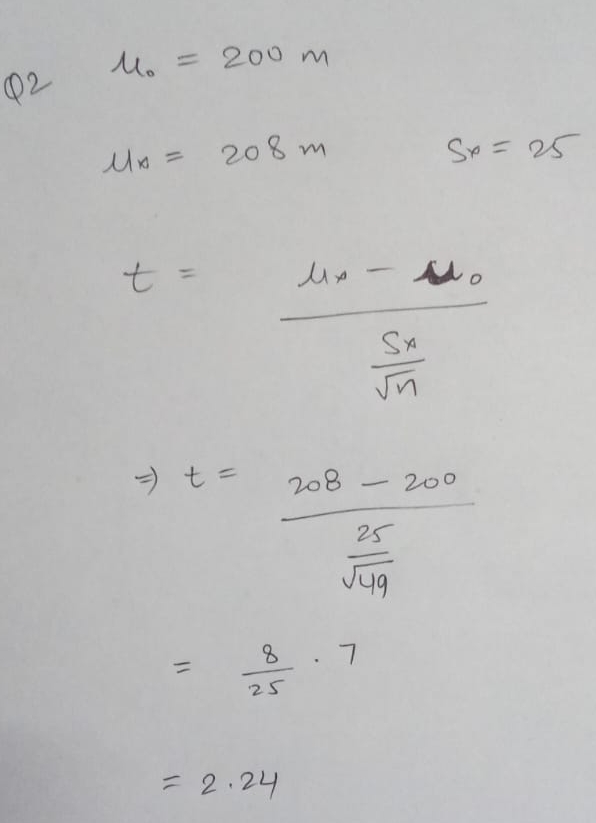 Q2 μ₀ = 200 m
μₓ = 208 m Sₓ = 25
t = (μₓ − μ₀) / (Sₓ / √n)
⇒ t = (208 − 200) / (25 / √49)
= 8/25 · 7
= 2.24